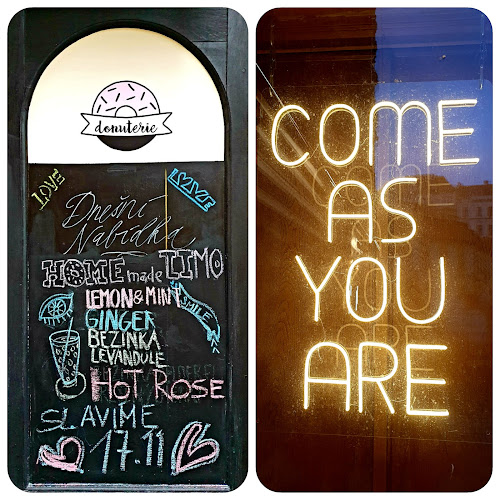 donuterie
LOVE
LOVE
Dnešní
Nabídka
HOME made LIMO
LEMON & MINT
SMILE
GINGER
BEZINKA
LEVANDULE
HOT ROSE
SLAVÍME
17.11
COME
AS
YOU
ARE